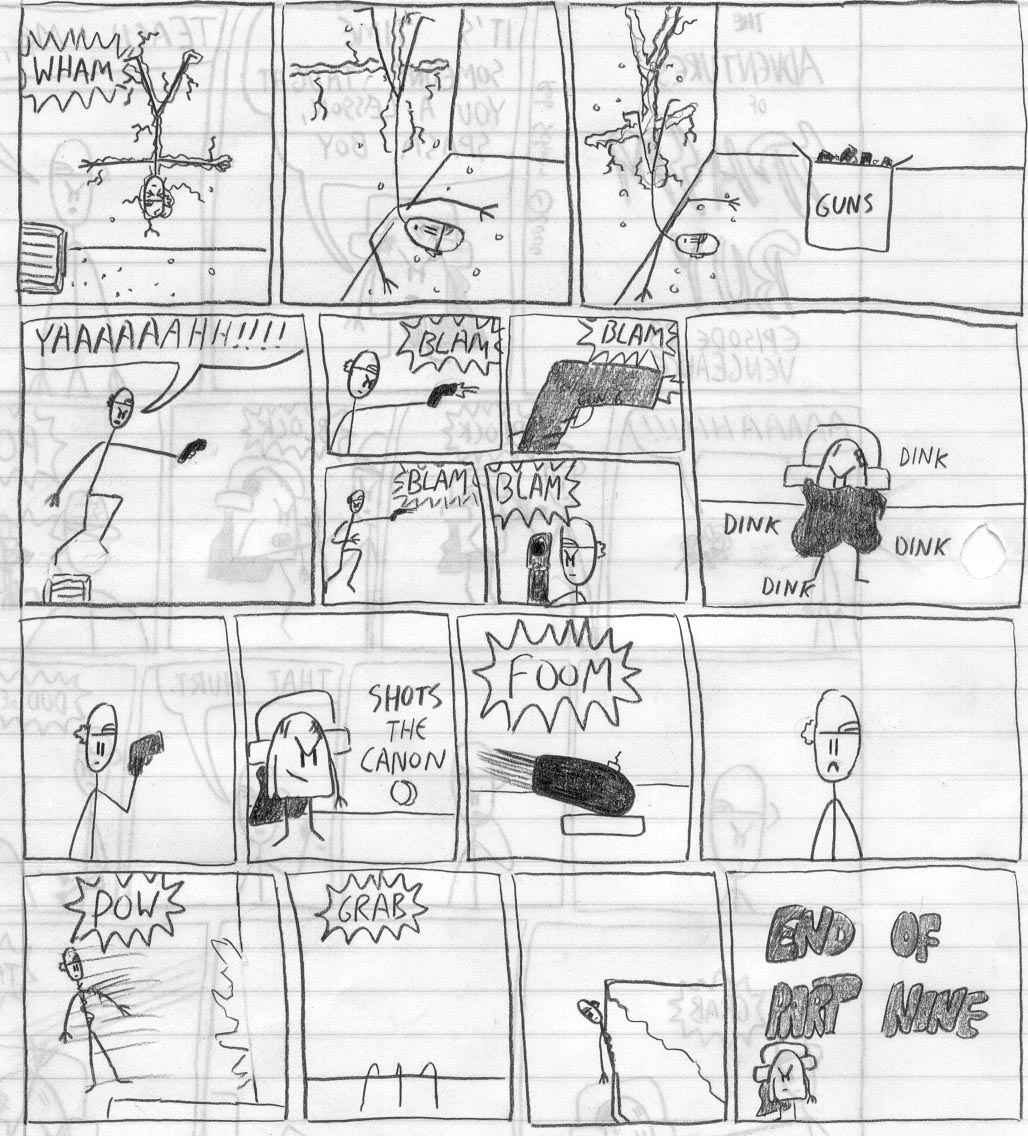 WHAM
GUNS
YAAAAAAHH!!!!
BLAM
BLAM
BLAM
BLAM
DINK
DINK
DINK
DINK
SHOTS
THE
CANON
FOOM
POW
GRAB
END OF
PART NINE